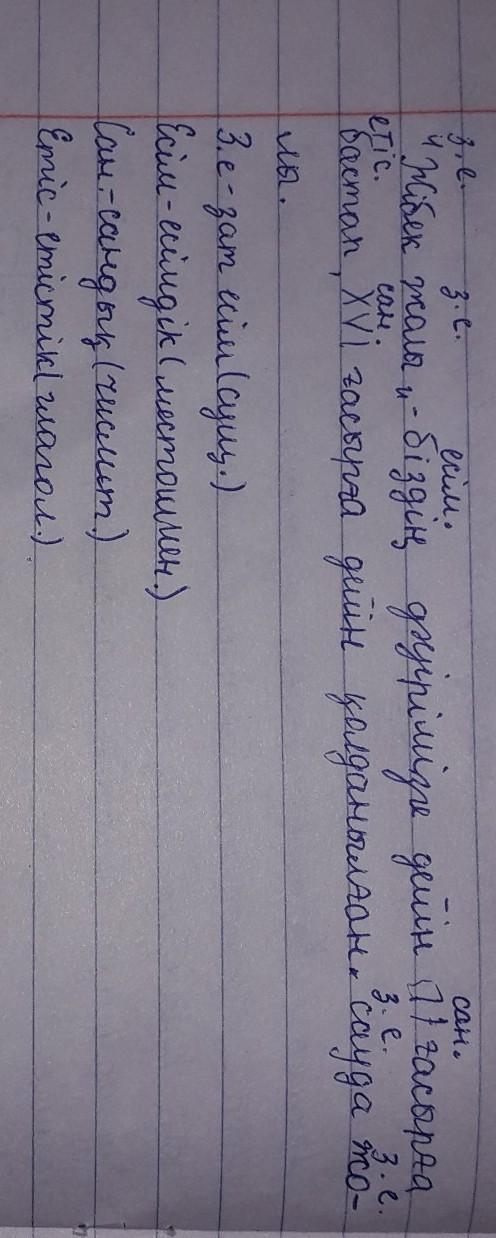 з.е. з.е. есім. сан.
"Жібек жолы" - біздің дәуірімізге дейін II ғасырға
етіс. сан. з.е. з.е.
бастап, XVI ғасырға дейін қолданылған. сауда жо-
лы.
З.е - зат есім (сущ.)
Есім - есімдік (местоимен.)
Сан. - сандық (числит.)
Етіс - етістік (глагол.)